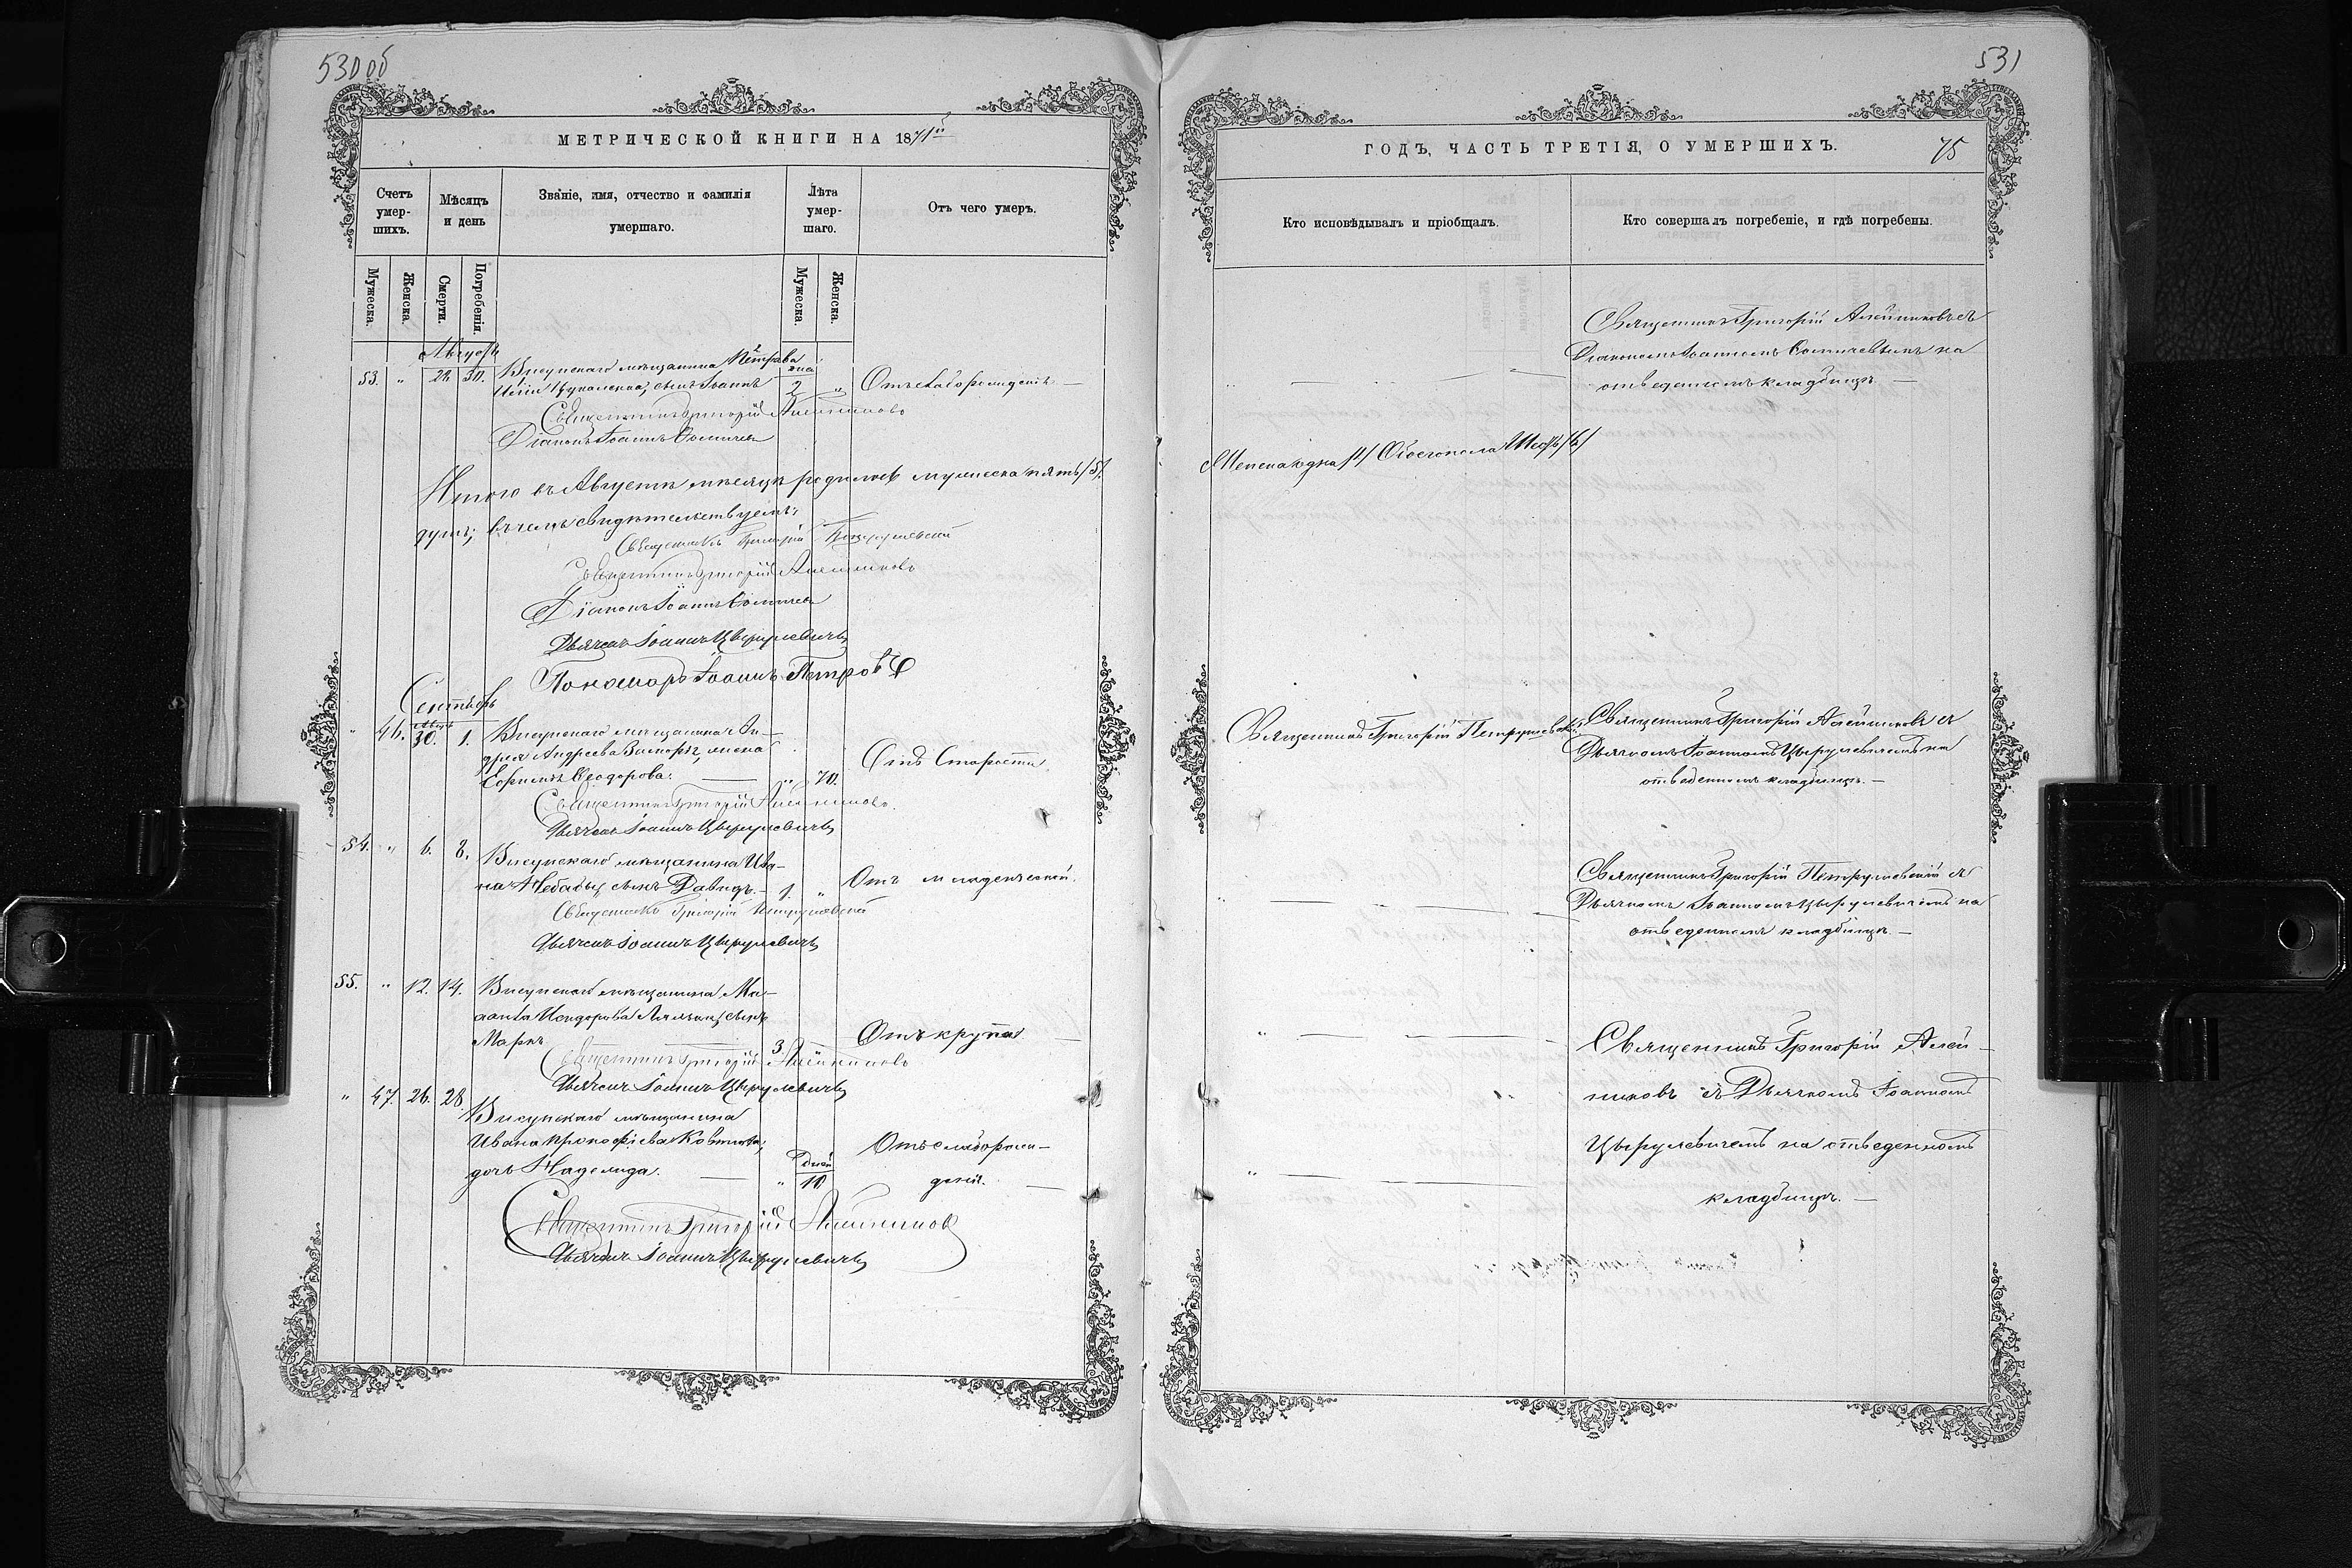 530 об
МЕТРИЧЕСКОЙ КНИГИ НА 1871й
Счетъ умер-шихъ.
Мѣсяцъ и день
Званіе, имя, отчество и фамилія
умершаго.
Лѣта умер-шаго.
Отъ чего умеръ.
Мужеска.
Женска.
Смерти.
Погребенія.
Мужеска.
Женска.
Августъ
53. " 28. 30. Висунскаго мѣщанина
сынъ Іоаннъ 2 " Отъ слаборожденія.—
Священникъ Григорій Алейниковъ
Діаконъ Іоаннъ
Итого въ Августѣ мѣсяцѣ родителей мужеска пять /5/.
душъ; въ чемъ свидѣтельствуемъ:
Священникъ Григорій Петрушевскій
Священникъ Григорій Алейниковъ
Діаконъ Іоаннъ
Дьячекъ Іоаннъ Цырулевичъ
Пономарь Іоаннъ Петровъ
Сентябрь
" 46. Авгус 30. 1. Висунскаго мѣщанина Ан-
дрея Андреева жена
Ефимія Ѳеодорова. — " 70. Отъ Старости.
Священникъ Григорій Алейниковъ.
Дьячекъ Іоаннъ Цырулевичъ
54. " 6. 8. Висунскаго мѣщанина Ива-
на Небабы сынъ Давидъ.— 1. " Отъ младенческой.
Священникъ Григорій Петрушевскій
Дьячекъ Іоаннъ Цырулевичъ
55. " 12. 14. Висунскаго мѣщанина
сынъ
Маркъ 3. Отъ крупа.
Священникъ Григорій Алейниковъ
Дьячекъ Іоаннъ Цырулевичъ
" 47. 26. 28. Висунскаго мѣщанина
Ивана Прокофіева
дочь Надежда. — " дней 10 Отъ слаборож-
денія. —
Священникъ Григорій Алейниковъ
Дьячекъ Іоаннъ Цырулевичъ
531
ГОДЪ, ЧАСТЬ ТРЕТІЯ, О УМЕРШИХЪ.
75
Кто исповѣдывалъ и пріобщалъ.
Кто совершалъ погребеніе, и гдѣ погребены.
Священникъ Григорій Алейниковъ съ
Діакономъ Іоанномъ на
отведенномъ кладбищѣ. —
Женска одна /1/ Обоего пола Шесть /6/
Священникъ Григорій Петрушевскій
Священникъ Григорій Алейниковъ съ
Дьячкомъ Іоанномъ Цырулевичемъ на
отведенномъ кладбищѣ. —
Священникъ Григорій Петрушевскій съ
Дьячкомъ Іоанномъ Цырулевичемъ на
отведенномъ кладбищѣ. —
Священникъ Григорій Алей-
никовъ съ Дьячкомъ Іоанномъ
Цырулевичемъ на отведенномъ
кладбищѣ. —